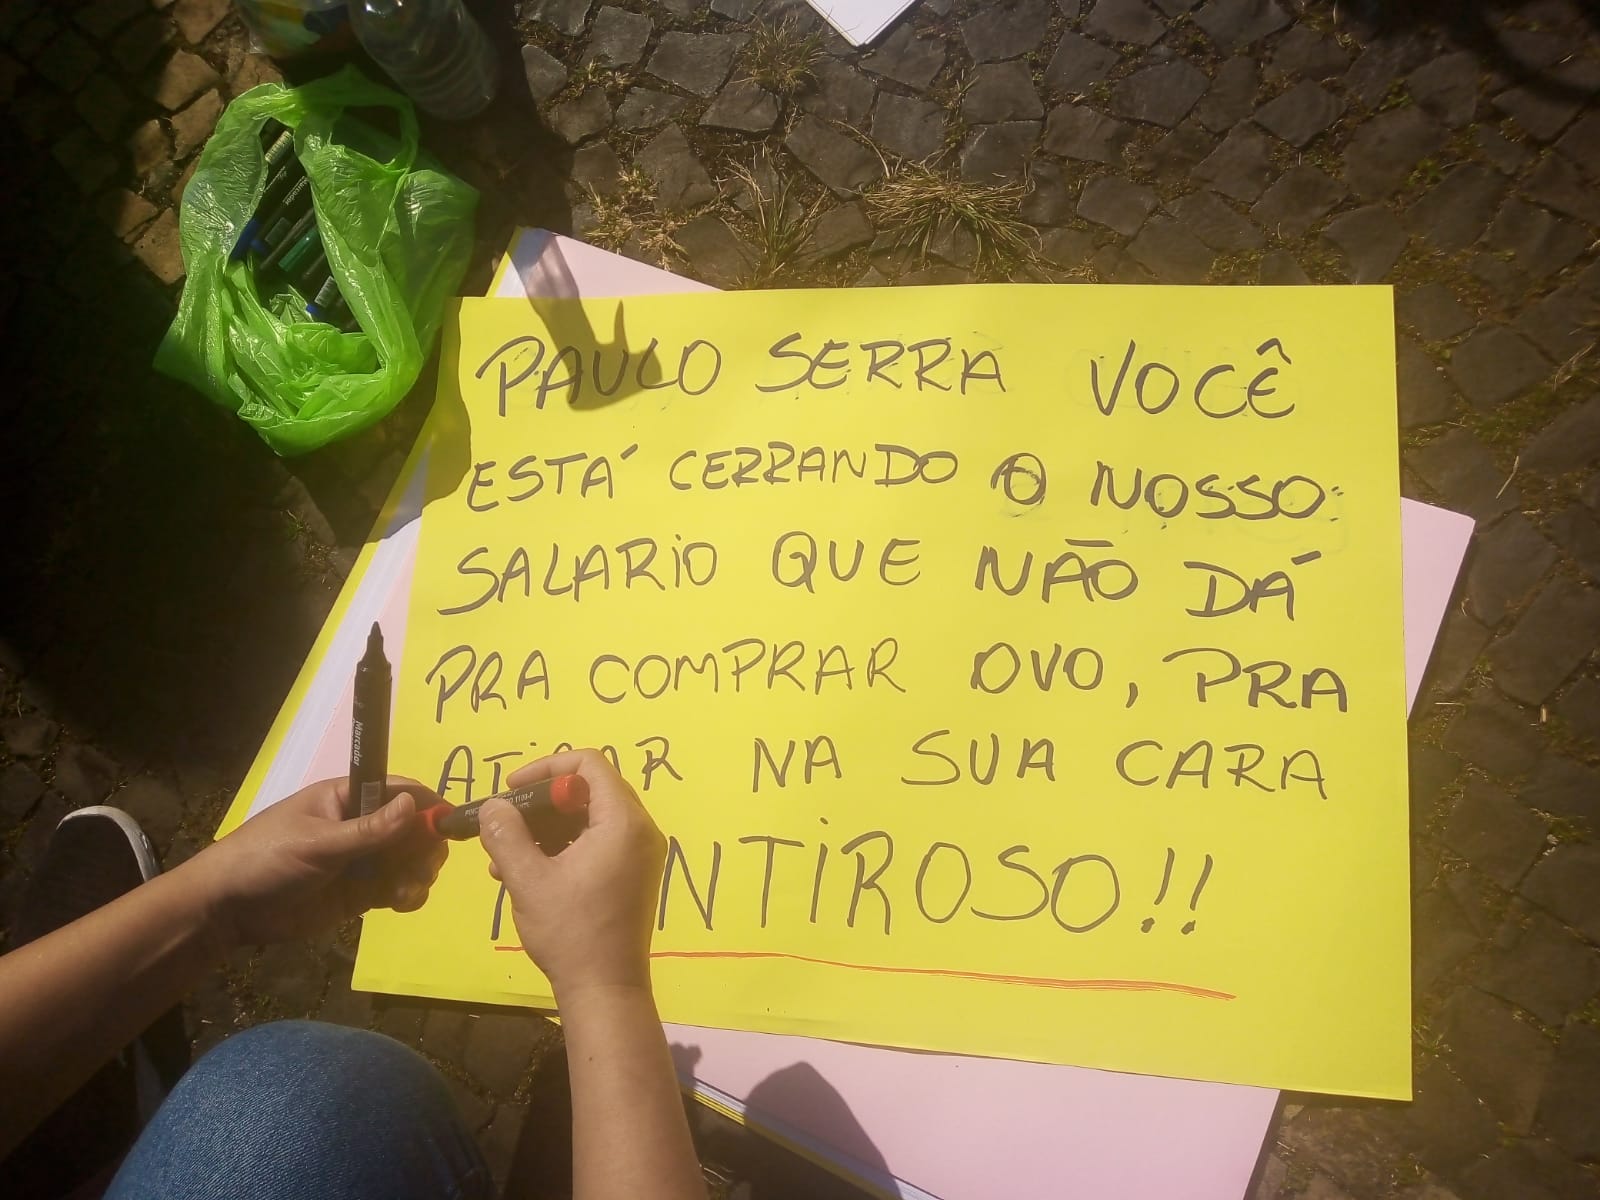 PAULO SERRA VOCÊ
ESTÁ CERRANDO O NOSSO
SALARIO QUE NÃO DÁ
PRA COMPRAR OVO, PRA
NA SUA CARA
!!
Marcador